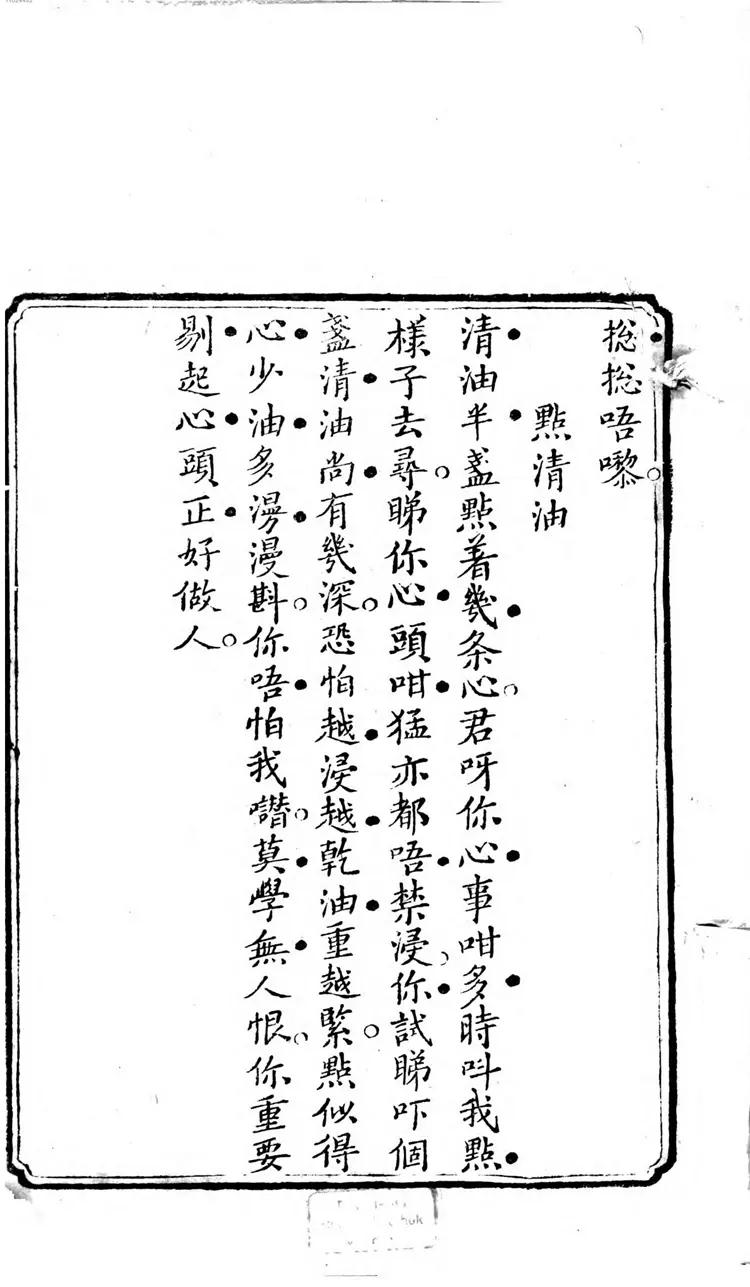 捴捴唔嚟
點清油
清油半盞點着幾条心君呀你心事咁多時呌我點
樣子去尋睇你心頭咁猛亦都唔禁浸你試睇吓個
盞清油尚有幾深恐怕越浸越乾油重越緊點似得
心少油多漫漫斟你唔怕我噆莫學無人恨你重要
剔起心頭正好做人